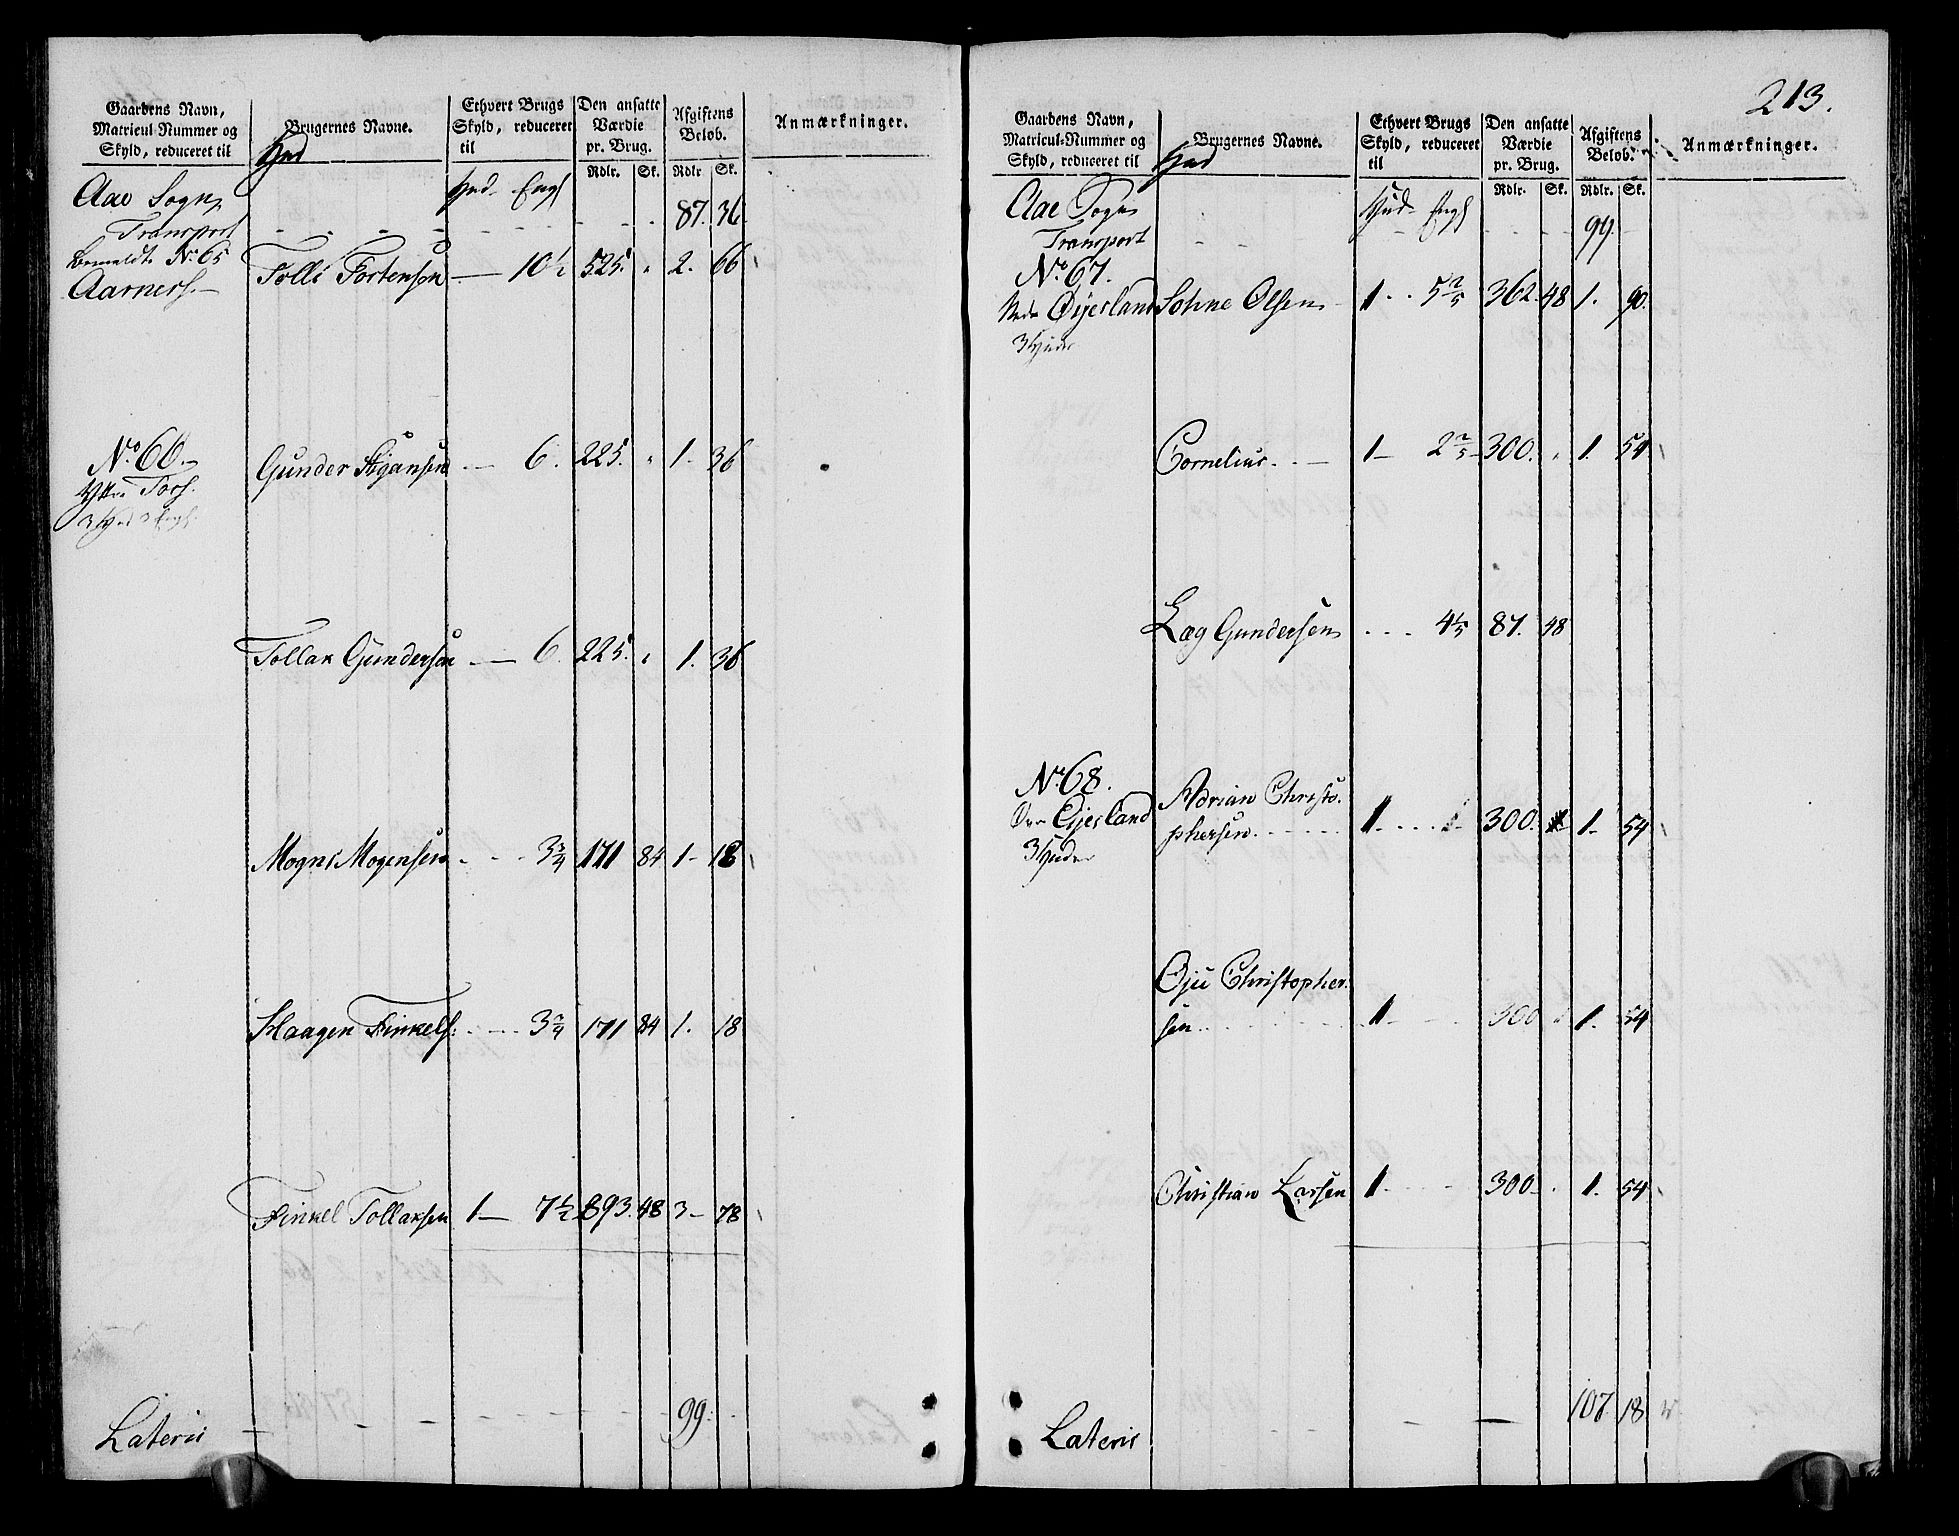 Gaardens Navn, Matricul-Nummer og Skyld, reduceret til | Brugernes Navne. | Ethvert Brugs Skyld, reduceret til | Den ansatte Værdie pr. Brug. Rdlr. Sk. | Afgiftens Beløb. Rdlr Sk. | Anmærkninger.
Hud
Aae Sogn, Hud. Eng
Transport - - - - 87. 36
No 65
Tolli Tortensøn — 10½ 525. " 2. 66
No 66. Gunder — 6. 225. " 1. 36
Tollak Gundersøn — 6. 225. " 1. 36
Mogns Mogensen - - 3¾ 171 84 1- 18
Haagen Finkels: - - 3¾ 171 84 1. 18
Finkel Tollaksen 1- 7½ 893. 48 3- 78
Lateris - - - - 99. -
213.
Gaardens Navn, Matricul-Nummer og Skyld, reduceret til | Brugernes Navne. | Ethvert Brugs Skyld, reduceret til | Den ansatte Værdie pr. Brug. Rdlr. Sk. | Afgiftens Beløb. Rdlr. Sk. | Anmærkninger.
Hud
Aae Sogn Hud. Eng
Transport - - - - 99 -
No 67.
Øijesland Olsen 1 - 5⅖ 362. 48 1. 90.
3 Huder
Cornelius - - 1- 2⅖ 300. " 1. 54
Gundersen - - - 4⅕ 87. 48
No 68. Adrian Christo-
Øvre Eijesland phersen - - - 1 - - - 300. 1- 54
3 Huder
Christopher-
sen - - - - 1- - - 300 1. 54
Christian Larsen 1 - - - 300- . 1. 54
Lateris - - 107 18